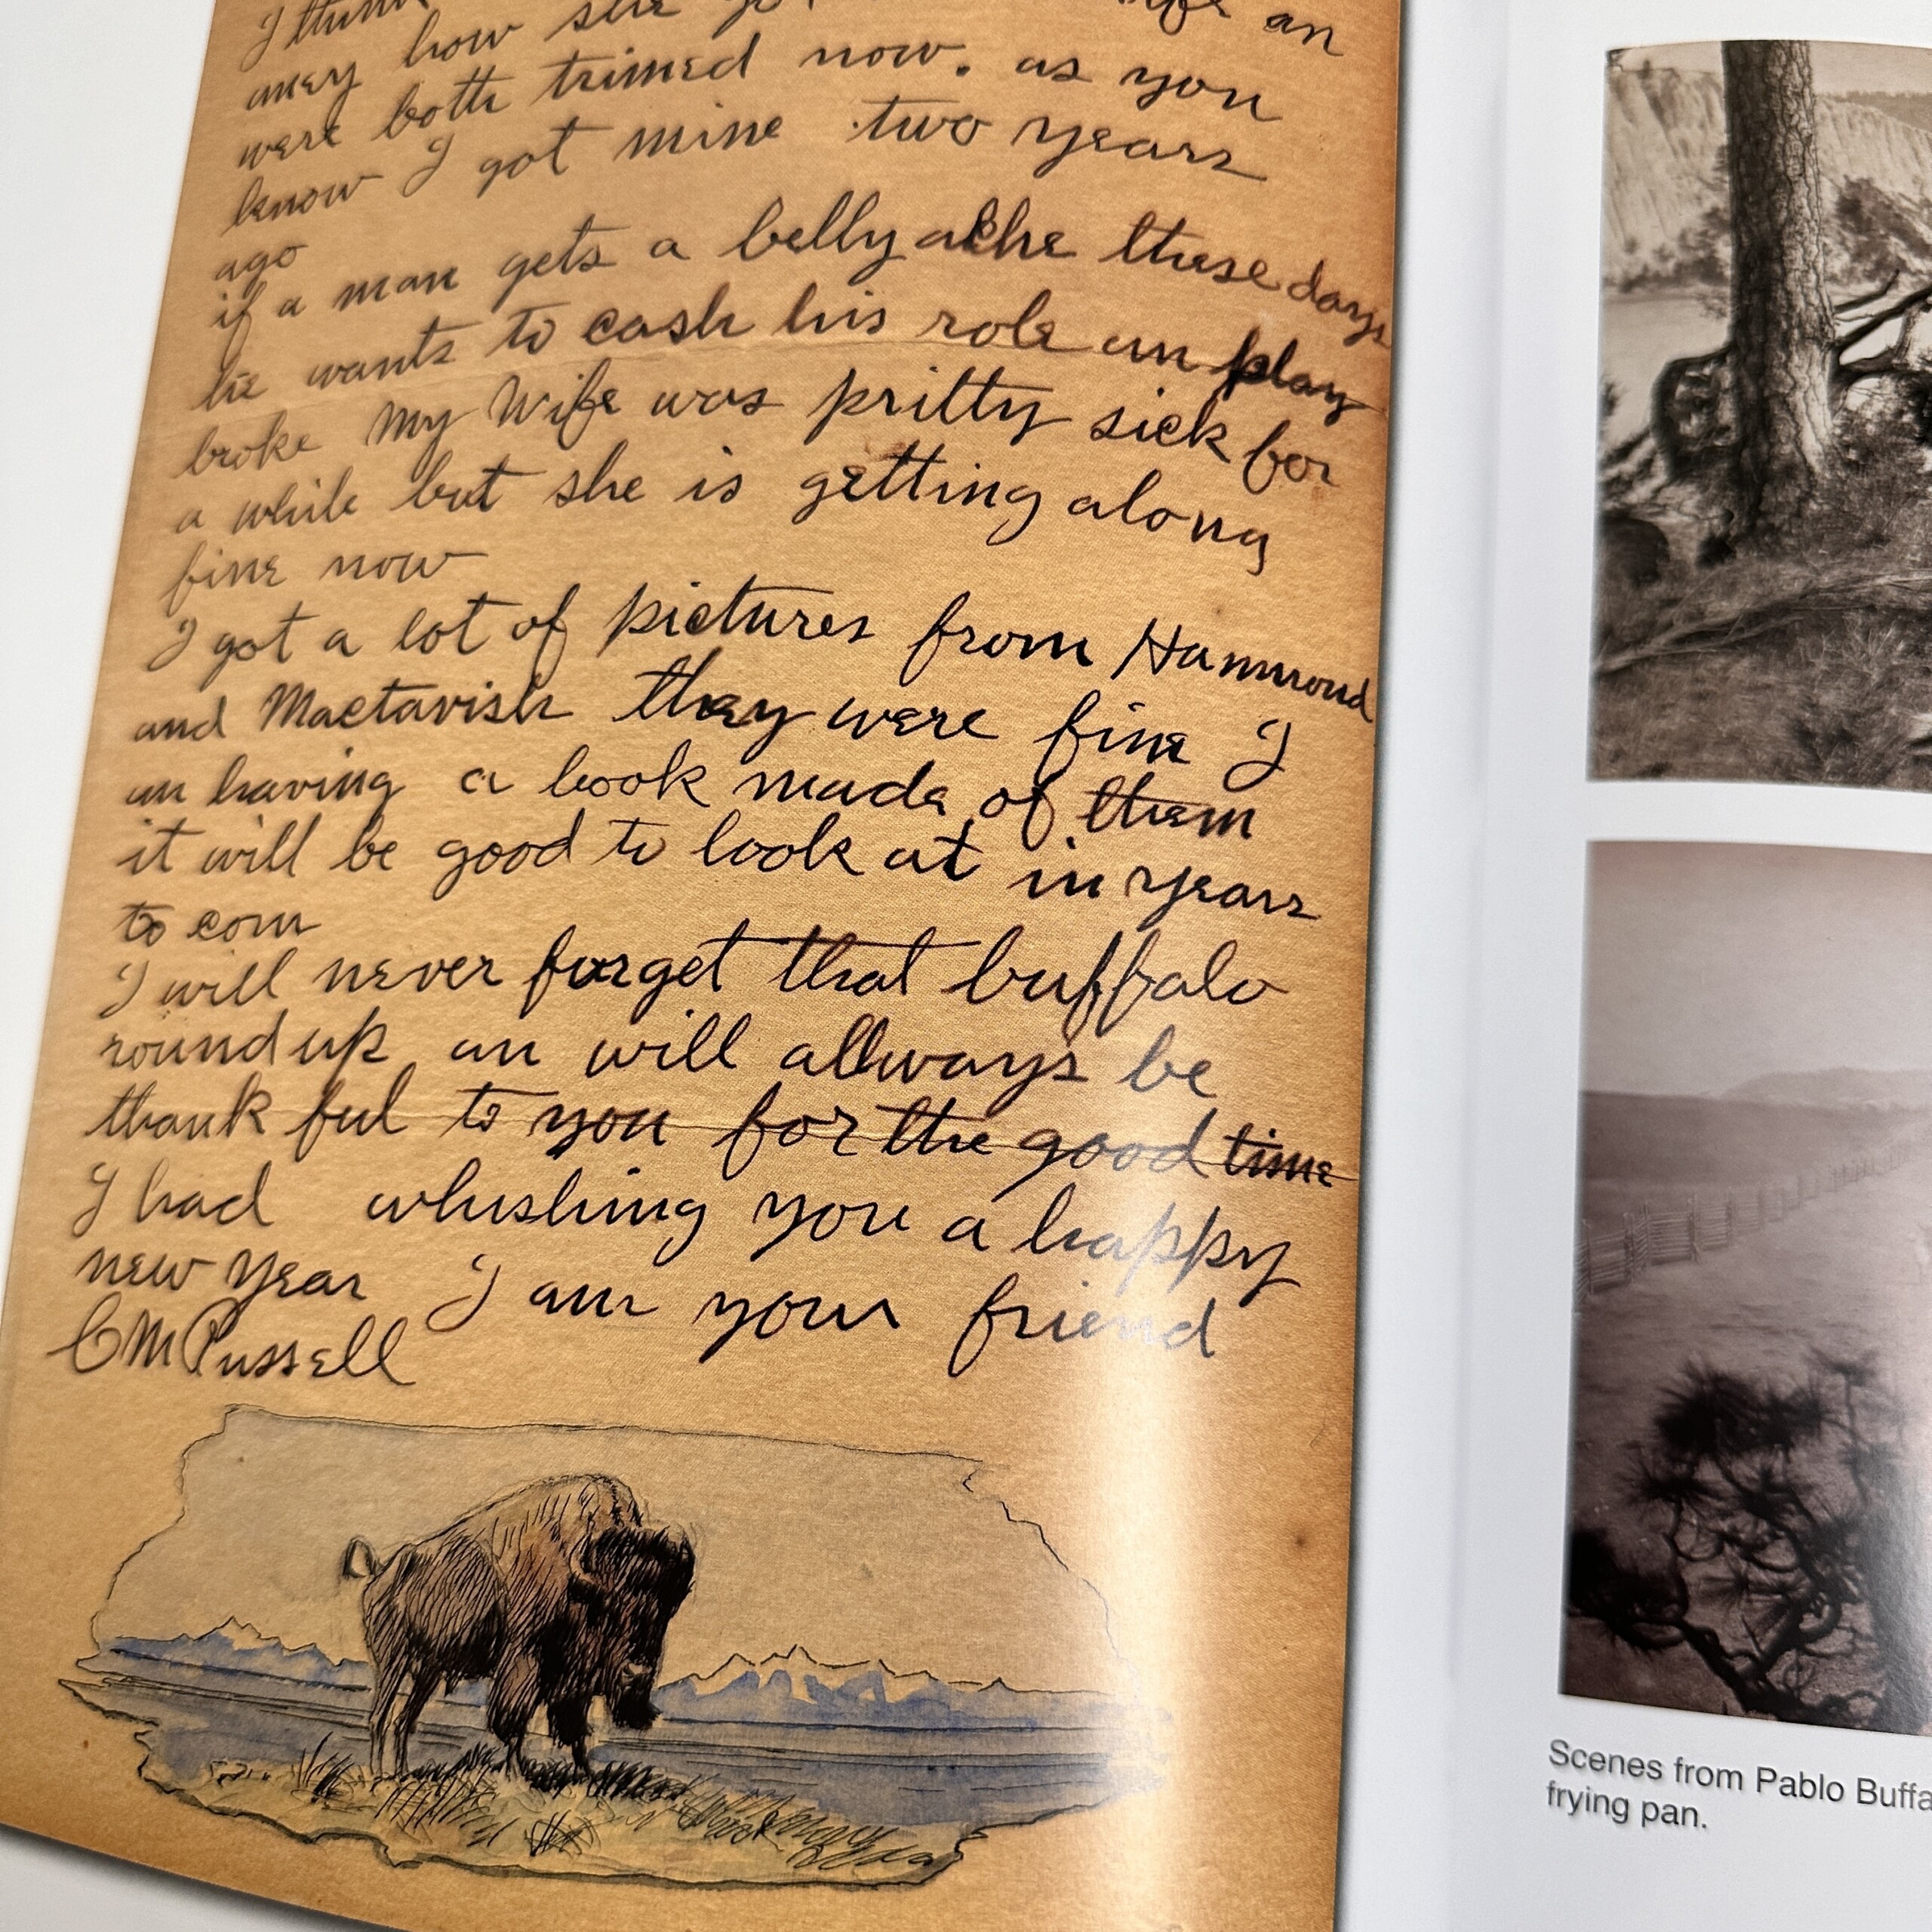 I think
aney how she an
were both trimed now. as you
know I got mine two years
ago
if a man gets a belly ache these days
he wants to cash his role an play
broke My Wife was pritty sick for
a while but she is getting along
fine now
I got a lot of pictures from Hammond
and Mactavish they were fine I
an having a book made of them
it will be good to look at in years
to com
I will never forget that buffalo
roundup an will allways be
thankful to you for the good time
I had whushing you a happy
new year I am your friend
CM Russell
Scenes from Pablo Buffa
frying pan.